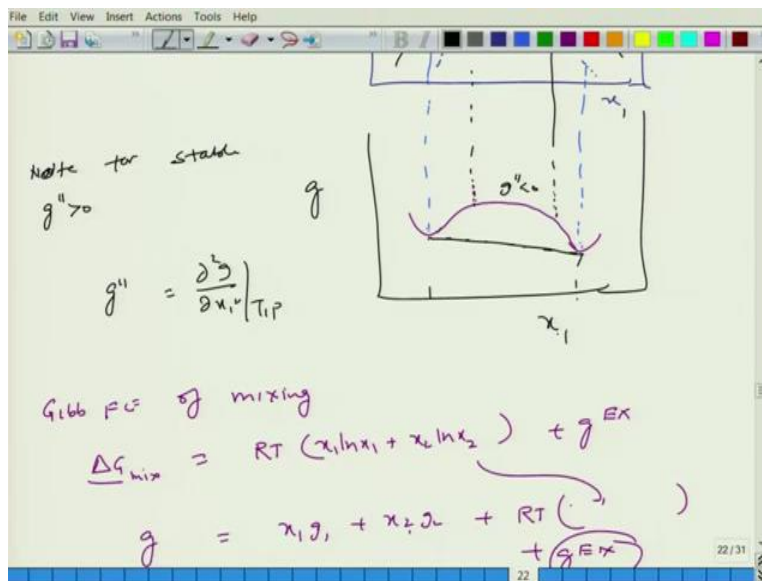 File Edit View Insert Actions Tools Help
B I
x₁
Note for stable
g'' > 0
g
g'' < 0
g'' = ∂²g / ∂x₁² |T₁P
x₁
Gibb FE of mixing
ΔG mix = RT (x₁ ln x₁ + x₂ ln x₂) + g^EX
g = x₁g₁ + x₂g₂ + RT ( )
+ g^EX
22/31
22